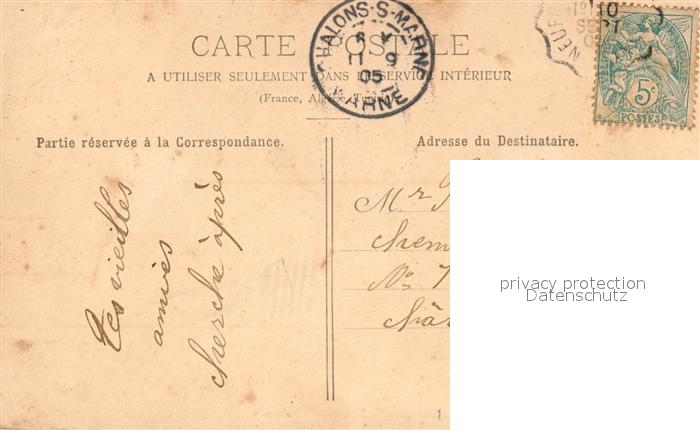 CARTE POSTALE
A UTILISER SEULEMENT DANS LE SERVICE INTÉRIEUR
(France, Algérie, Tunisie)
CHALONS-S-MARNE
11 9
05
MARNE
10
SEPT
NEUF
5c
POSTES
Partie réservée à la Correspondance.
Adresse du Destinataire.
vieilles
amies
cherche àprès
Mr
Chem
No
Châ
privacy protection
Datenschutz